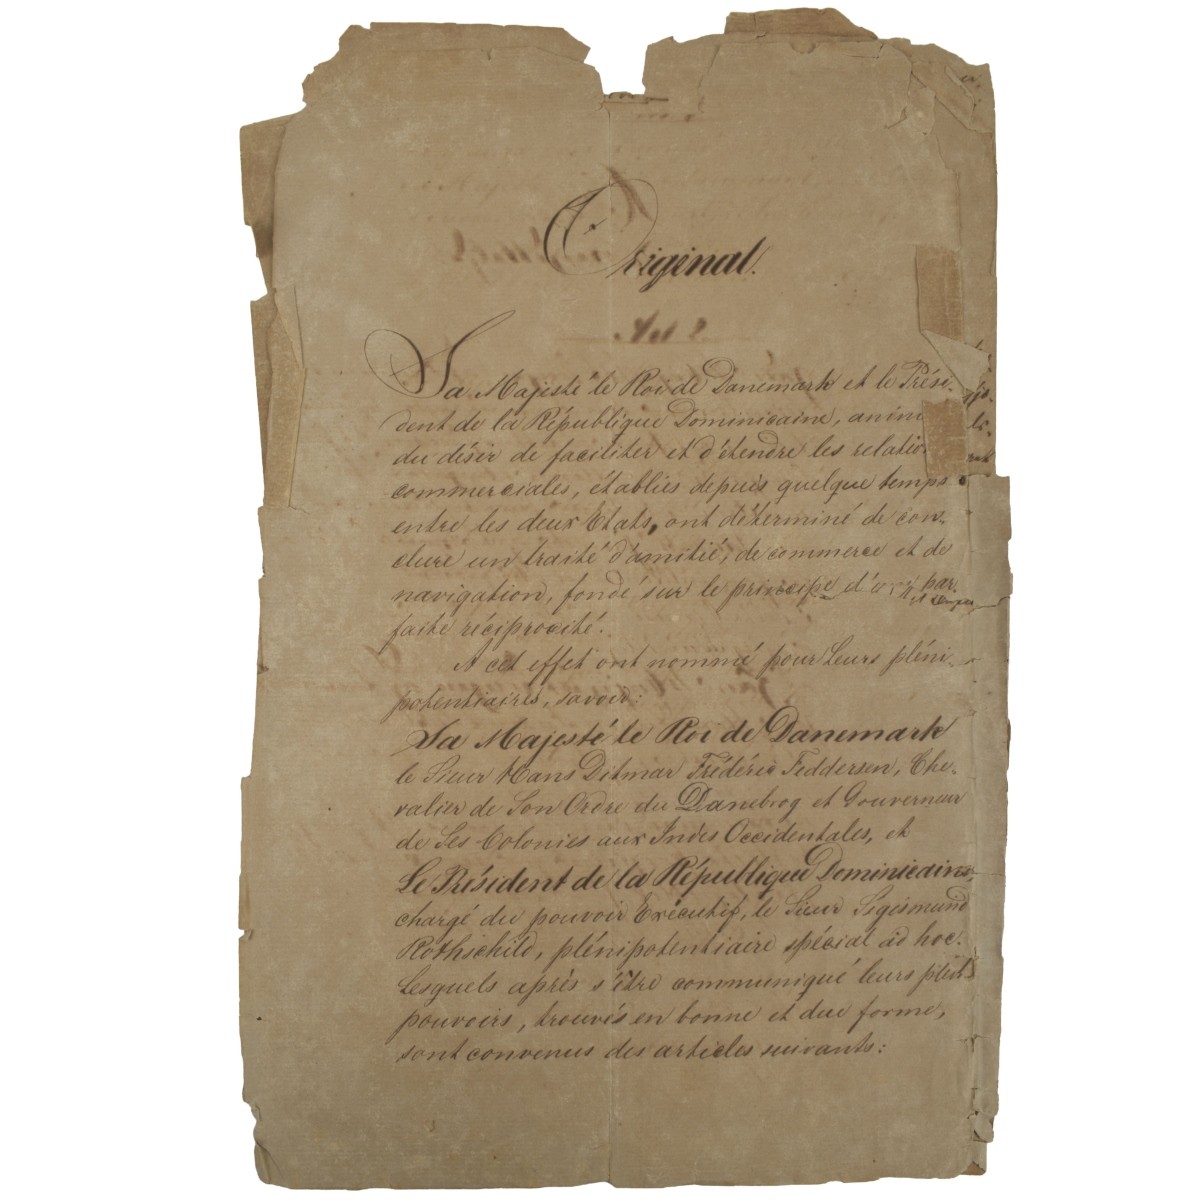 Original.
Sa Majesté le Roi de Danemark et le Prési-
dent de la République Dominicaine, anim
du désir de faciliter et d'étendre les relatio
commerciales, établies depuis quelque temps
entre les deux Etats, ont déterminé de con-
clure un traité d'amitié, de commerce et de
navigation, fondé sur le principe d' par-
faite réciprocité.
A cet effet ont nommé pour Leurs pléni-
potentiaires, savoir:
Sa Majesté le Roi de Danemark
le Sieur Hans Ditmar Frédéric Feddersen, Che-
valier de Son Ordre du Danebrog et Gouverneur
de Ses Colonies aux Indes Occidentales, et
Le Président de la République Dominicaine,
chargé du pouvoir Exécutif, le Sieur Sigismund
Rothschild, plénipotentiaire spécial ad hoc.
Lesquels après s'être communiqué leurs plein-
pouvoirs, trouvés en bonne et due forme,
sont convenus des articles suivants: